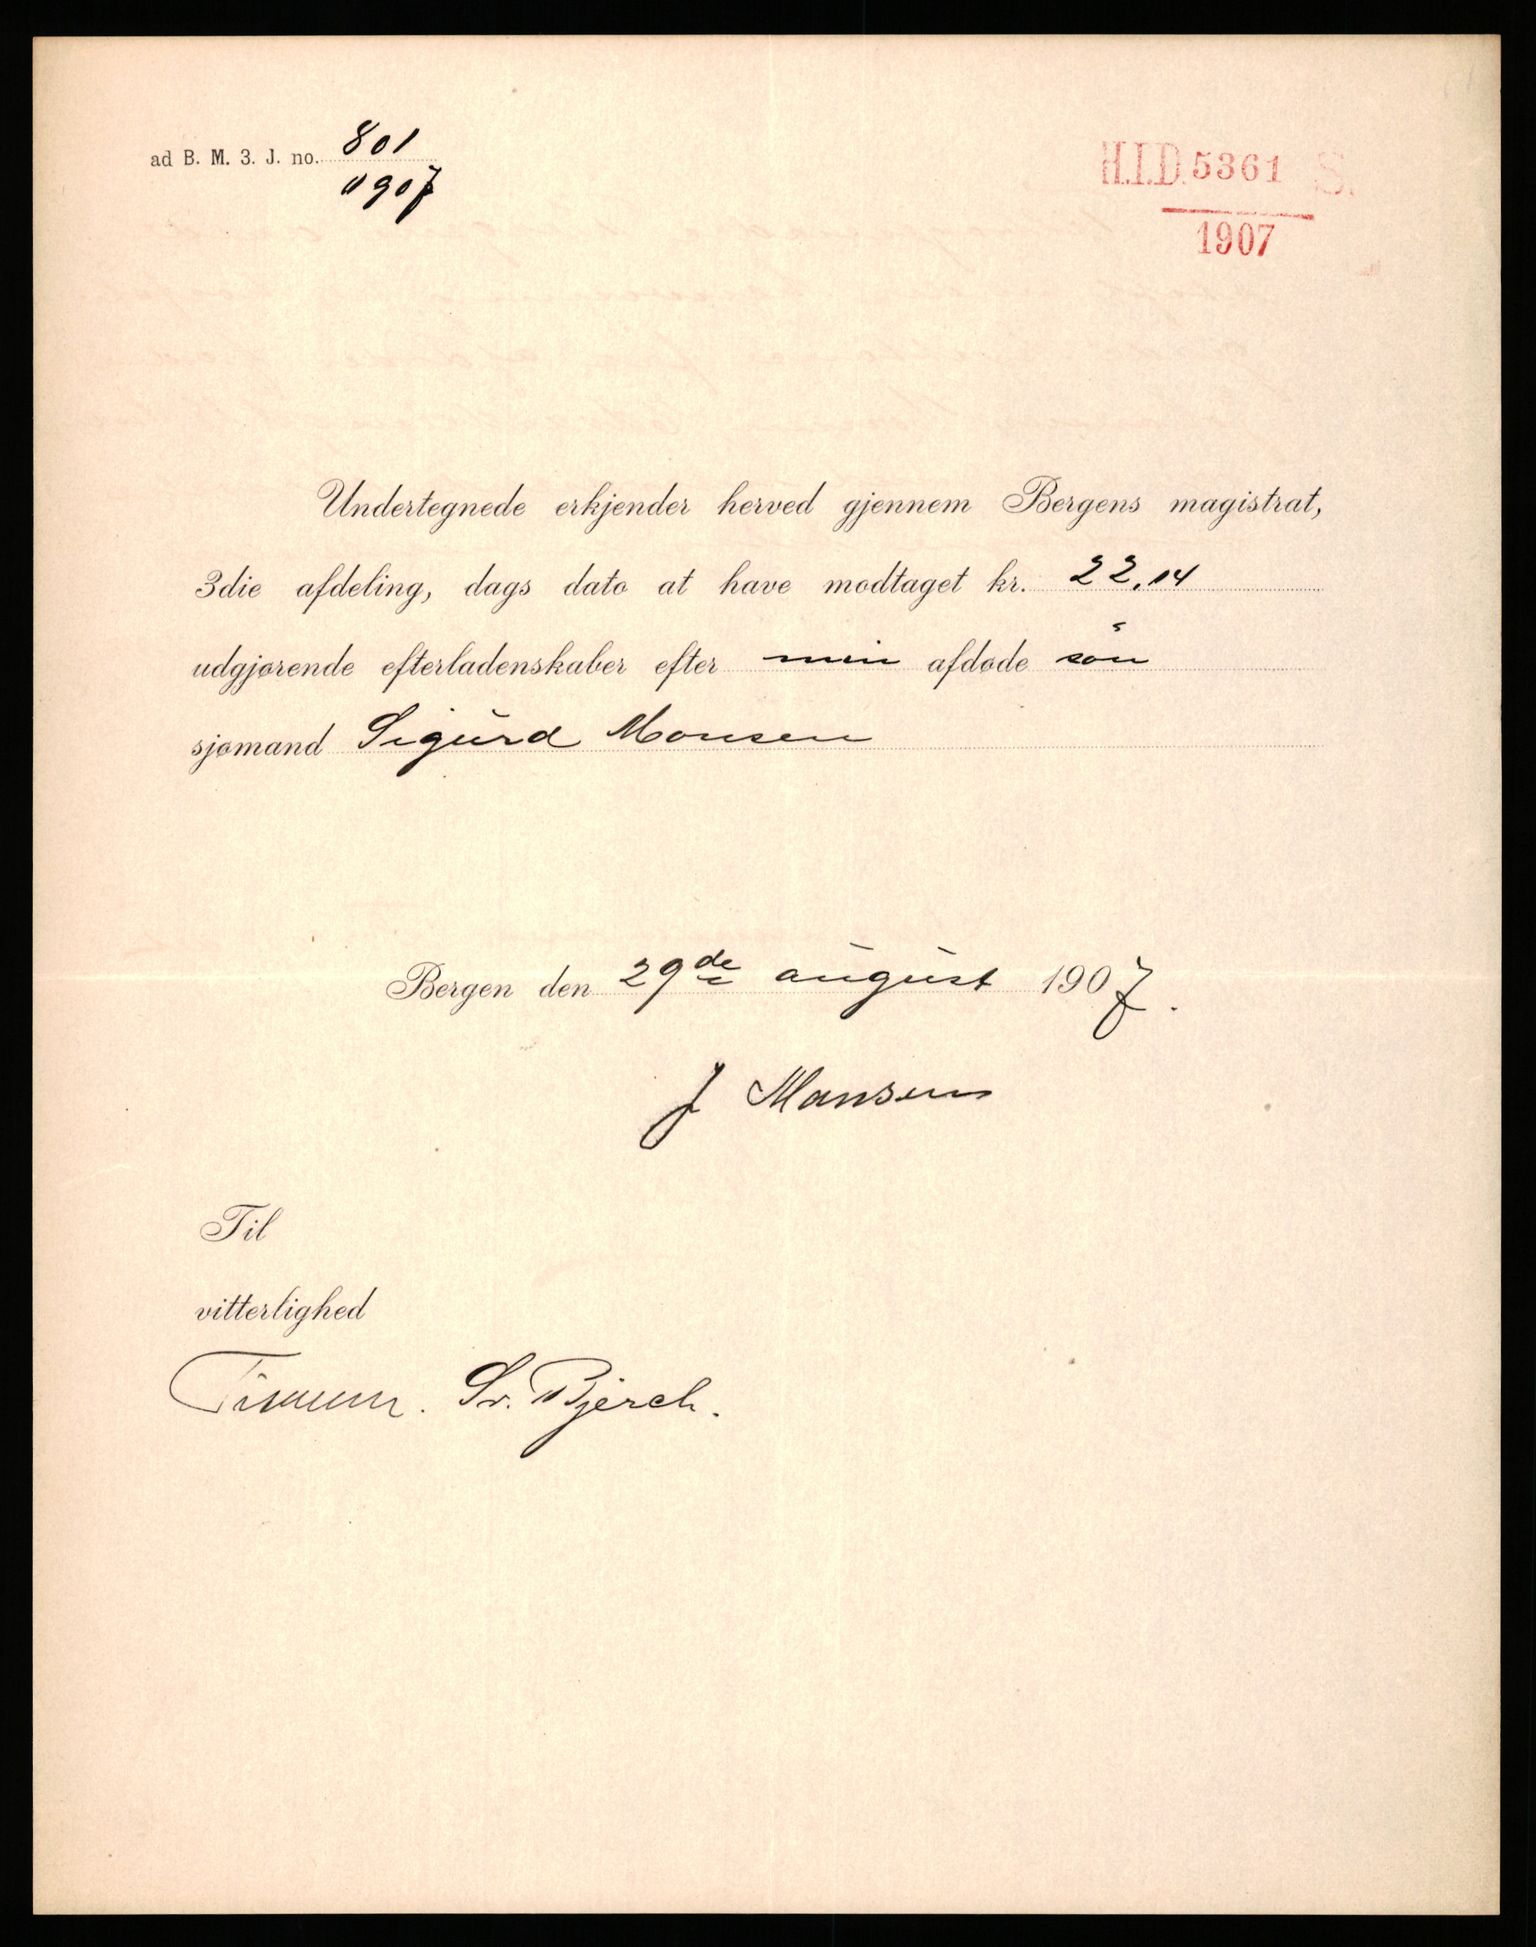 ad B. M. 3. J. no. 801
1907
H.I.D. 5361 S.
1907
Undertegnede erkjender herved gjennem Bergens magistrat,
3die afdeling, dags dato at have modtaget kr. 22.14
udgjørende efterladenskaber efter min afdøde søn
sjømand Sigurd Monsen
Bergen den 29de august 1907.
J Monsen
Til
vitterlighed
Sv. Bjerch.